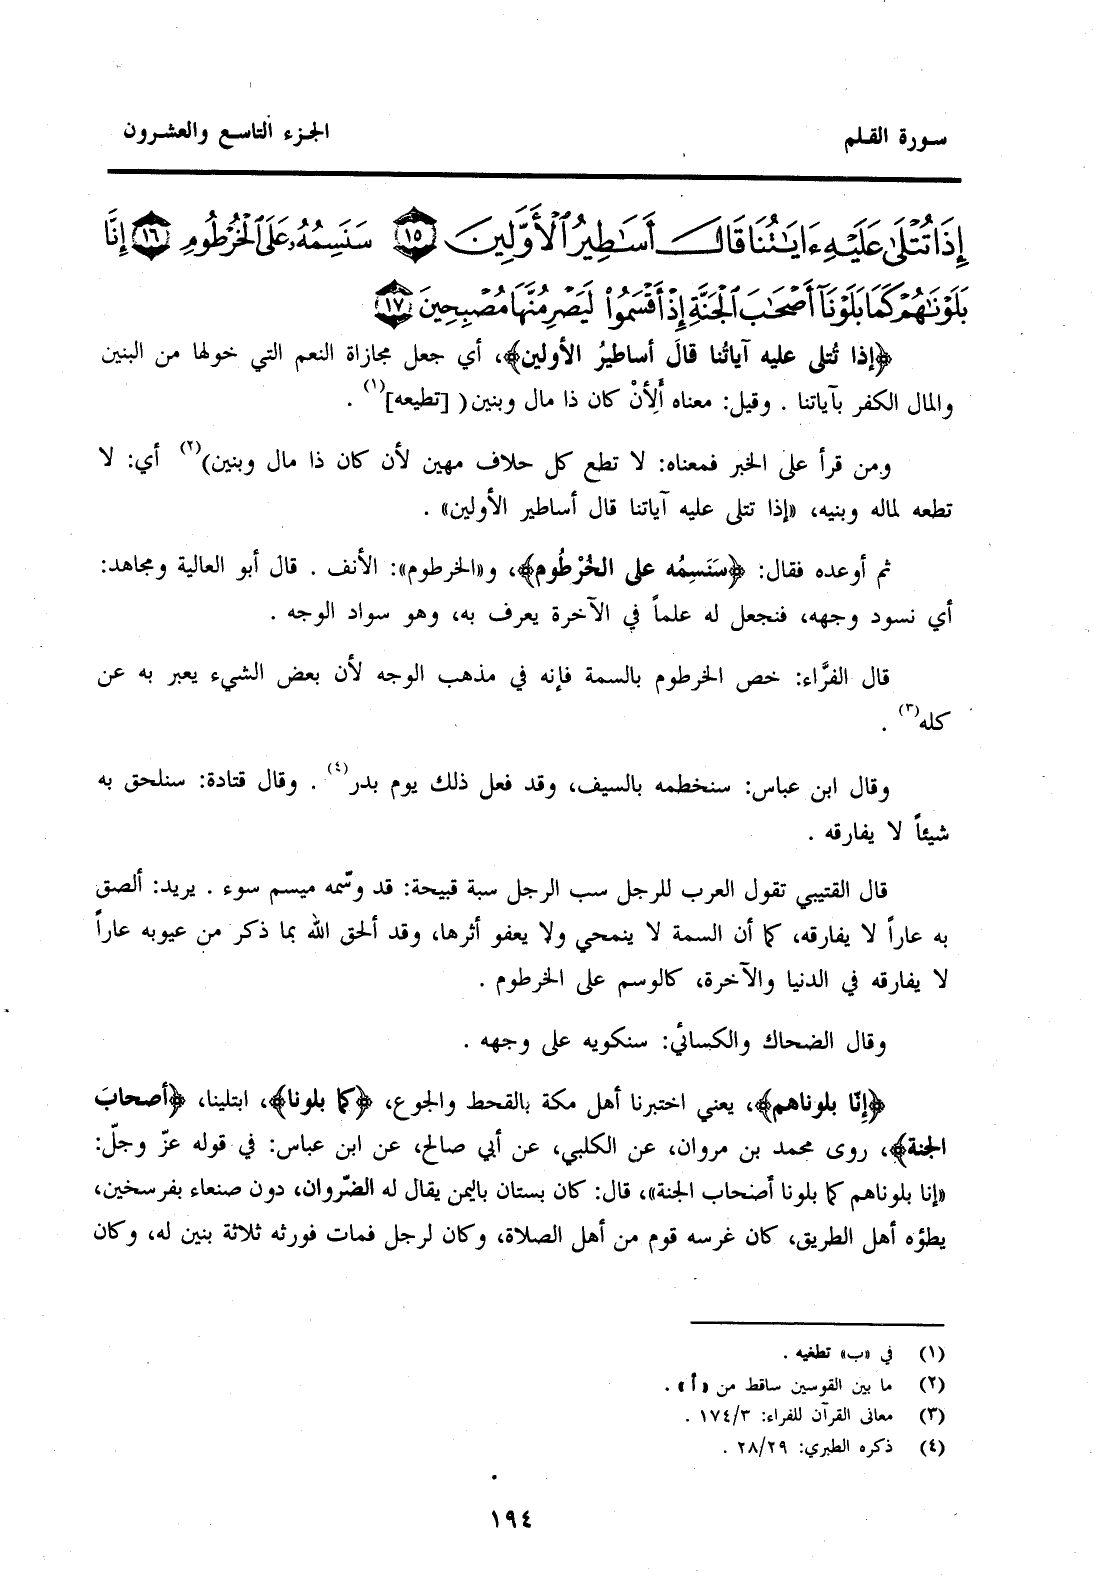 سورة القلم
الجزء التاسع والعشرون
إِذَا تُتْلَىٰ عَلَيْهِ ءَايَٰتُنَا قَالَ أَسَٰطِيرُ ٱلْأَوَّلِينَ ١٥ سَنَسِمُهُۥ عَلَى ٱلْخُرْطُومِ ١٦ إِنَّا
بَلَوْنَٰهُمْ كَمَا بَلَوْنَآ أَصْحَٰبَ ٱلْجَنَّةِ إِذْ أَقْسَمُوا۟ لَيَصْرِمُنَّهَا مُصْبِحِينَ ١٧
﴿إذا تُتلى عليه آياتُنا قالَ أساطيرُ الأولين﴾، أي جعل مجازاة النعم التي خولها من البنين
والمال الكفر بآياتنا . وقيل: معناه أَلِأنْ كان ذا مال وبنين( [تطيعه](١) .
ومن قرأ على الخبر فمعناه: لا تطع كل حلاف مهين لأن كان ذا مال وبنين)(٢) أي: لا
تطعه لماله وبنيه، «إذا تتلى عليه آياتنا قال أساطير الأولين» .
ثم أوعده فقال: ﴿سَنَسِمُه على الخُرْطُوم﴾، و«الخرطوم»: الأنف . قال أبو العالية ومجاهد:
أي نسود وجهه، فنجعل له علماً في الآخرة يعرف به، وهو سواد الوجه .
قال الفرَّاء: خص الخرطوم بالسمة فإنه في مذهب الوجه لأن بعض الشيء يعبر به عن
كله(٣) .
وقال ابن عباس: سنخطمه بالسيف، وقد فعل ذلك يوم بدر(٤) . وقال قتادة: سنلحق به
شيئاً لا يفارقه .
قال القتيبي تقول العرب للرجل سب الرجل سبة قبيحة: قد وسّمه ميسم سوء . يريد: ألصق
به عاراً لا يفارقه، كما أن السمة لا ينمحي ولا يعفو أثرها، وقد ألحق الله بما ذكر من عيوبه عاراً
لا يفارقه في الدنيا والآخرة، كالوسم على الخرطوم .
وقال الضحاك والكسائي: سنكويه على وجهه .
﴿إنّا بلوناهم﴾، يعني اختبرنا أهل مكة بالقحط والجوع، ﴿كما بلونا﴾، ابتلينا، ﴿أصحابَ
الجنة﴾، روى محمد بن مروان، عن الكلبي، عن أبي صالح، عن ابن عباس: في قوله عزّ وجلّ:
«إنا بلوناهم كما بلونا أصحاب الجنة»، قال: كان بستان باليمن يقال له الضّروان، دون صنعاء بفرسخين،
يطؤه أهل الطريق، كان غرسه قوم من أهل الصلاة، وكان لرجل فمات فورثه ثلاثة بنين له، وكان
(١) في «ب» تطغيه .
(٢) ما بين القوسين ساقط من «أ» .
(٣) معانى القرآن للفراء: ١٧٤/٣ .
(٤) ذكره الطبري: ٢٨/٢٩ .
١٩٤